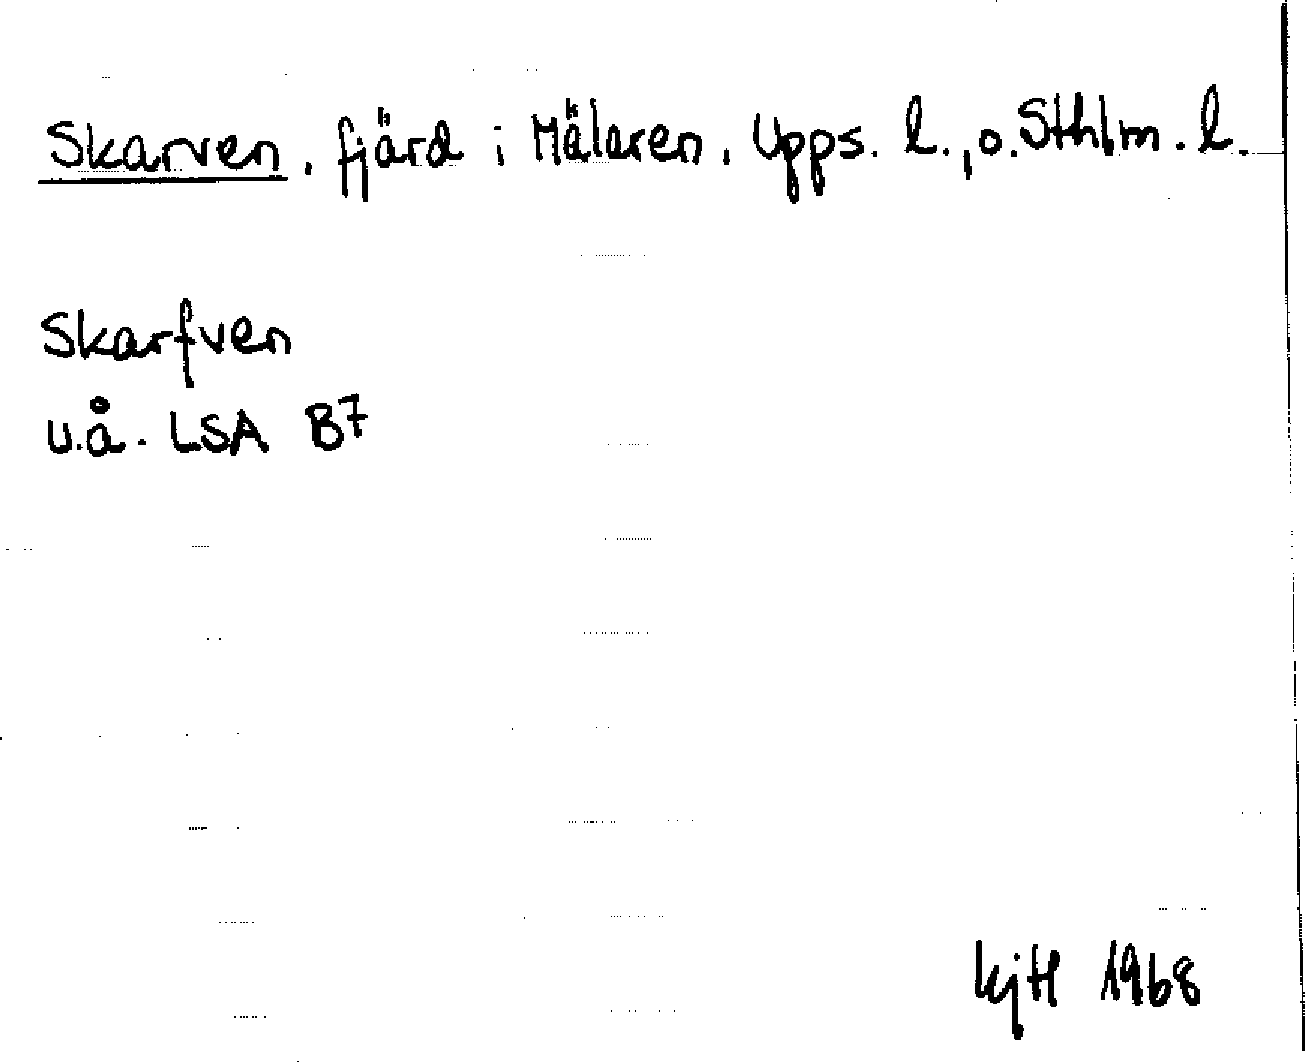 Skarven, fjärd i Mälaren, Upps. l., o. Sthlm. l.
Skarfven
u.å. LSA B7
KjH 1968